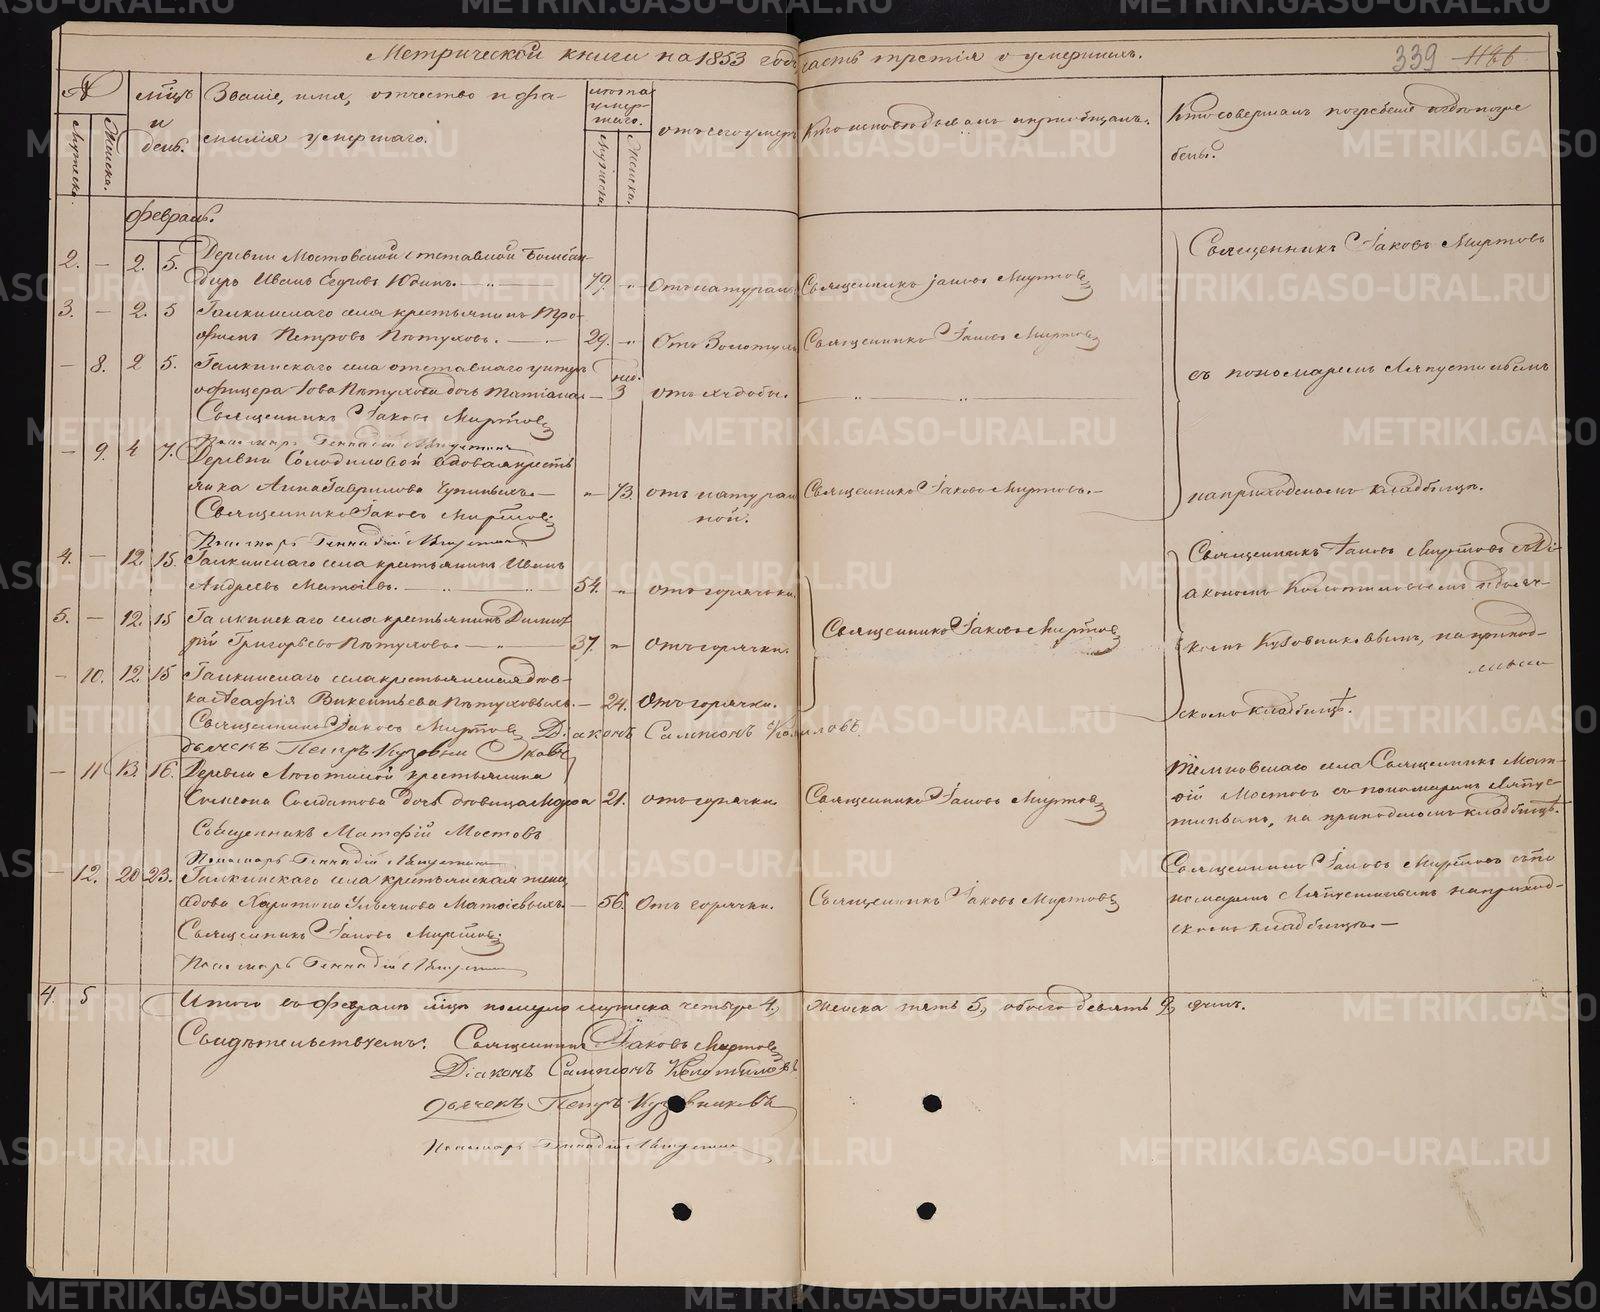 Метрической книги на 1853 годъ часть третія о умершихъ.
339
№
Мужеска.
Женска.
мѣсяцъ и день.
Званіе, имя, отчество и фамилія умершаго.
лѣта умершаго.
Мужеска.
Женска.
отъ чего умеръ
Кто исповѣдывалъ и пріобщалъ.
Кто совершалъ погребеніе и гдѣ погребены.
Февраль.
2. — 2. 5. Деревни Мостовской отставной Бомбан-
диръ Иванъ Егоровъ Юдинъ. — 79. Отъ натуральн. Священникъ Іаковъ Миртовъ
Священникъ Іаковъ Миртовъ
3. — 2. 5 Галкинскаго села крестьянинъ Тро-
фимъ Петровъ Пѣтуховъ. — 29. Отъ Золотухи Священникъ Іаковъ Миртовъ
— 8. 2 5. Галкинскаго села отставнаго унтеръ
офицера Іова Пѣтухова дочь Татіана — нед. 3 отъ худобы.
съ пономаремъ Ляпустинымъ
Священникъ Іаковъ Миртовъ
Пономарь Геннадій Ляпустинъ
— 9. 4 7. Деревни Солодиловой вдовая кресть
янка Анна Гаврилова — 73. отъ натураль
ной. Священникъ Іаковъ Миртовъ. —
на приходскомъ кладбищѣ.
Священникъ Іаковъ Миртовъ
Пономарь Геннадій Ляпустинъ
4. — 12. 15. Галкинскаго села крестьянинъ Иванъ
Андреевъ Матѳіевъ. — 54. отъ горячки.
Священникъ Іаковъ Миртовъ съ Ді-
акономъ Колотиловымъ и дьяч-
5. — 12. 15 Галкинскаго села крестьянинъ Димит
рій Григорьевъ Пѣтуховъ. — 37. отъ горячки.
Священникъ Іаковъ Миртовъ
комъ Кузовниковымъ, на приход-
— 10. 12. 15 Галкинскаго села крестьянская дѣв-
ка Агафія Викентьева Пѣтуховыхъ. — 24. Отъ горячки.
скомъ кладбищѣ.
Священникъ Іаковъ Миртовъ Діаконъ Сампсонъ Колотиловъ
дьячекъ Петръ Кузовниковъ
— 11 13. 16. Деревни Леготиной крестьянина
Симеона Солдатова дочь дѣвица Марфа 21. отъ горячки Священникъ Іаковъ Миртовъ
села Священникъ Мат-
ѳій Мостовъ съ пономаремъ Ляпус-
тинымъ, на приходскомъ кладбищѣ.
Священникъ Матфій Мостовъ
Пономарь Геннадій Ляпустинъ
— 12. 20 23. Галкинскаго села крестьянская жена,
вдова Харитина Ульянова Матѳіевыхъ. — 56. Отъ горячки. Священникъ Іаковъ Миртовъ
Священникъ Іаковъ Миртовъ съ по
номаремъ Ляпустинымъ на приход-
скомъ кладбищѣ. —
Священникъ Іаковъ Миртовъ
Пономарь Геннадій Ляпустинъ
4. 5 Итого въ Февралѣ мѣсяцѣ померло мужеска четыре 4, женска пять 5, обоего девять 9, душъ.
Свидѣтельствуемъ: Священникъ Іаковъ Миртовъ
Діаконъ Сампсонъ Колотиловъ
Дьячекъ Петръ Кузовниковъ
Пономарь Геннадій Ляпустинъ
METRIKI.GASO-URAL.RU